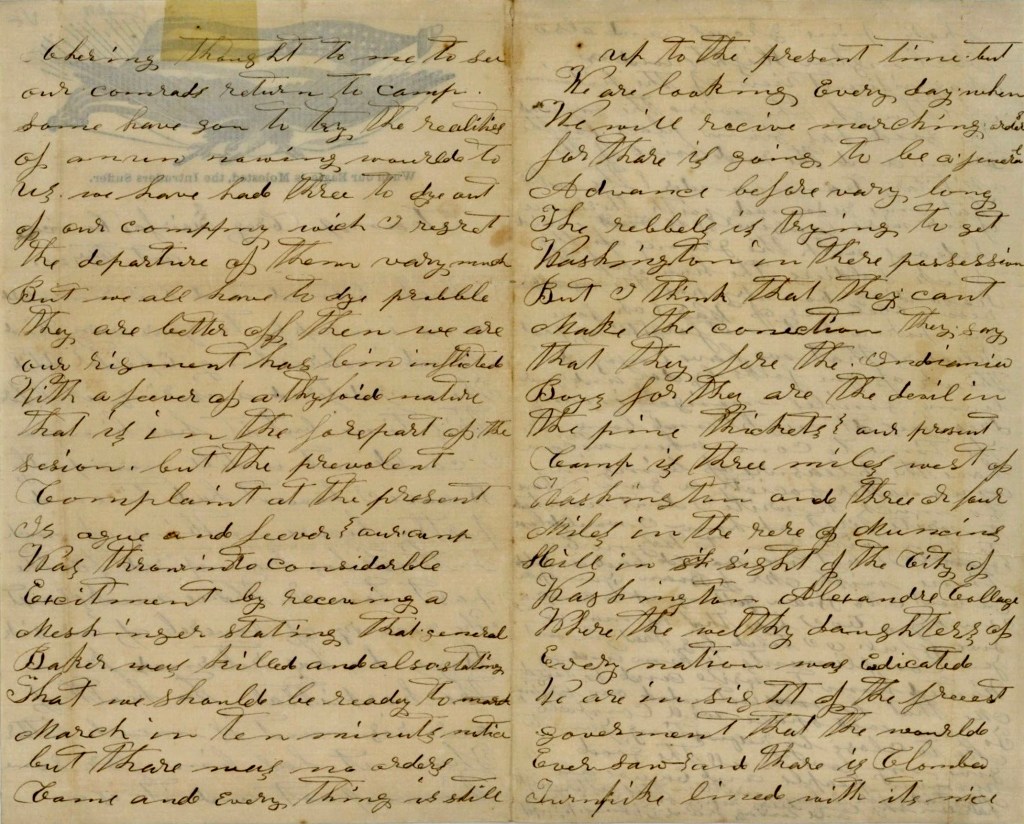 Chering thought to me to see
our comrads return to camp.
some have gon to try the realities
of an un nowing wourld to
us. we have had three to dye out
of our compfmy wich I regret
the departure of them vary much
But we all have to dye probble
they are better off then we are
our rigment has bin inflicted
With a feever of a thyfoid nature
that is in the forepart of the
sesion. but the prevalent
Complaint at the present
Is ague and feever & our camp
Was thrown into considerble
Excitment by receeving a
Meshinger stating that general
Baker was killed and also stating
That we should be ready to march
March in ten minuts notice
but thare was no orders
Came and Every thing is still
up to the present time but
We are looking Every day when
We will receive marching orders
for thare is going to be a general
Advance before vary long
The rebbels is trying to get
Washington in there possession
But I think that they cant
Make the conection they say
that they fere the Indiania
Boys for they are the devil in
the pine thickets & our present
Camp is three miles west of
Washington and three or four
Miles in the rere of Muncins
Hill in sight of the City of
Washington Alexandre Collage
Where the welthy daughters of
Every nation was Edicated
We are in sight of the freest
goverment that the wourld
Ever saw and thare is Clombia
Turnpike lined with its nice
our Eagle is Molested, the Intruders Suffer.